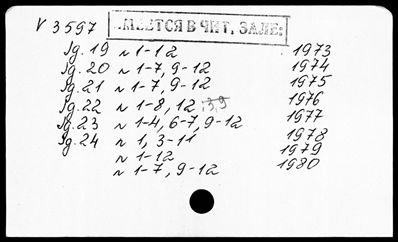 V 3597
ИМЕЕТСЯ В ЧИТ. ЗАЛЕ:
Jg. 19 N 1-12 1973
Jg. 20 N 1-7, 9-12 1974
Jg. 21 N 1-7, 9-12 1975
Jg. 22 N 1-8, 12 1976
Jg. 23 N 1-4, 6-7, 9-12 1977
Jg. 24 N 1, 3-11 1978
N 1-12 1979
N 1-7, 9-12 1980